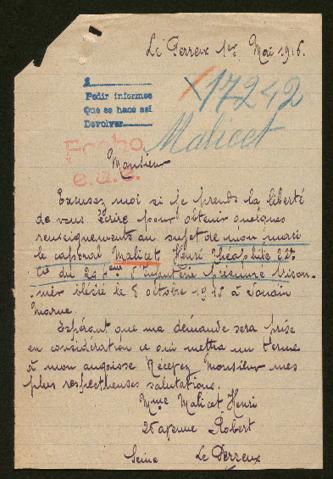 Le Perreux 1er Mai 1916.
Pedir informes
Que se hace así
Devolver
17242
Malicet
Fecho
e.a.s.
Monsieur
Excusez moi si je prends la liberté
de vous écrire pour obtenir quelques
renseignements au sujet de mon mari
le caporal Malicet Henri Théophile 22e
Cie du 294ème d'Infanterie présumé prison-
nier blessé le 8 octobre 1915 à Souain
Marne
Espérant que ma demande sera prise
en considération ce qui mettra un terme
à mon angoisse Recevez Monsieur mes
plus respectueuses salutations.
Mme Malicet Henri
25 avenue Robert
Le Perreux
Seine